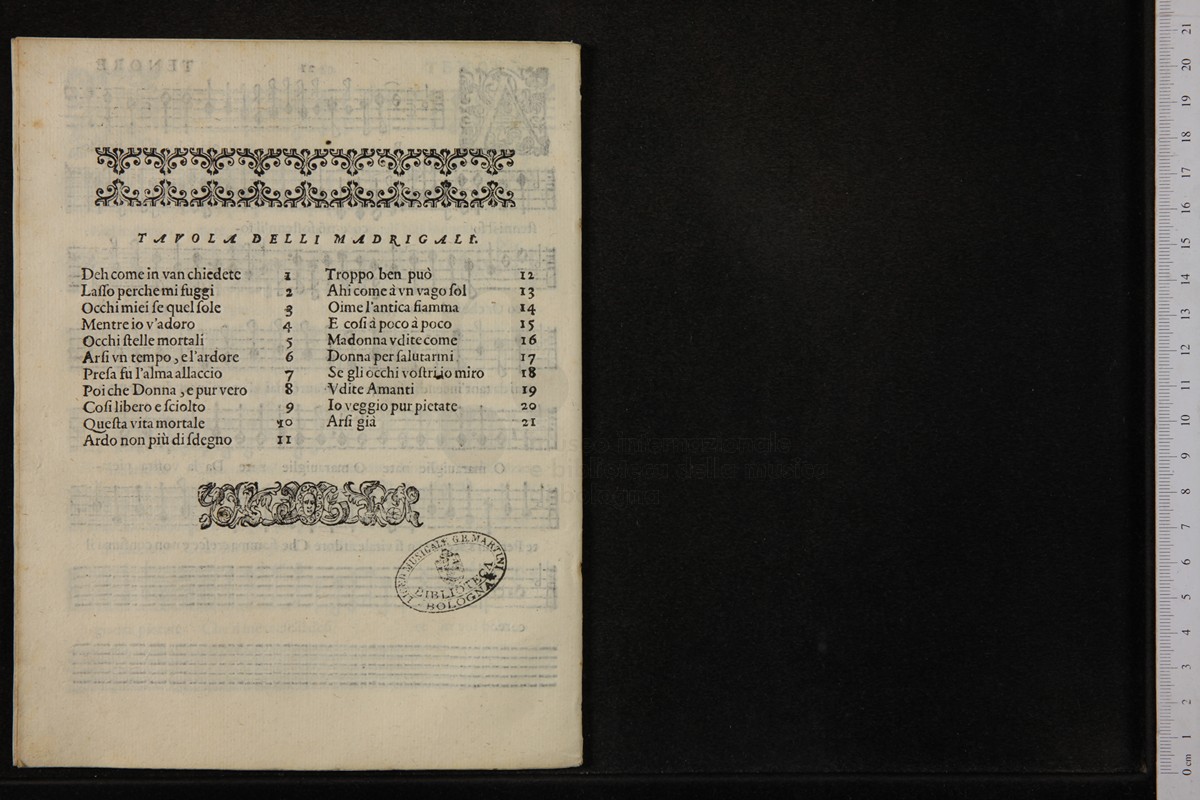 TAVOLA DELLI MADRIGALI.
Deh come in van chiedete 1
Laſſo perche mi fuggi 2
Occhi miei ſe quel ſole 3
Mentre io v'adoro 4
Occhi ſtelle mortali 5
Arſi vn tempo, e l'ardore 6
Preſa fu l'alma allaccio 7
Poi che Donna, e pur vero 8
Coſi libero e ſciolto 9
Queſta vita mortale 10
Ardo non più di ſdegno 11
Troppo ben può 12
Ahi come à vn vago ſol 13
Oime l'antica fiamma 14
E coſi à poco à poco 15
Madonna vdite come 16
Donna per ſalutarmi 17
Se gli occhi voſtri io miro 18
Vdite Amanti 19
Io veggio pur pietate 20
Arſi già 21
LICEO MUSICALE G.B. MARTINI
BIBLIOTECA
BOLOGNA
TENORE
museo internazionale
e biblioteca della musica
bologna
0 cm 1 2 3 4 5 6 7 8 9 10 11 12 13 14 15 16 17 18 19 20 21